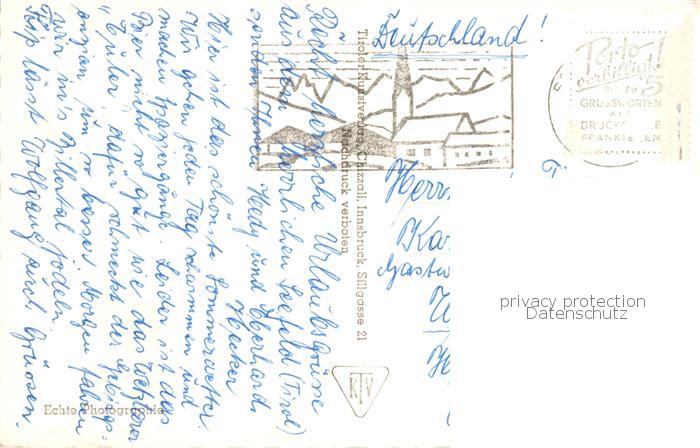 Deutschland!
Recht herzliche Urlaubsgrüsse
aus dem herrlichen Seefeld (Tirol)
senden Ihnen Hedy und Eberhard
Hecker
Hier ist das schönste Sommerwetter.
Wir gehen jeden Tag schwimmen und
machen Spaziergänge. Leider ist das
Bier nicht so gut wie das Wetzlarer
"Euler", dafür schmeckt der Gebirgs=
enzian um so besser. Morgen fahren
wir ins Zillertal jodeln.
lässt Wolfgang auch Grüssen.
Tiroler Kunstverlag Chizzali, Innsbruck, Sillgasse 21
Nachdruck verboten
KTV
Echte Photographie
Porto
verbilligt!
BIS ZU 5
GRUSSWORTEN
ALS
DRUCKSACHE
FRANKIEREN
Herrn
privacy protection
Datenschutz